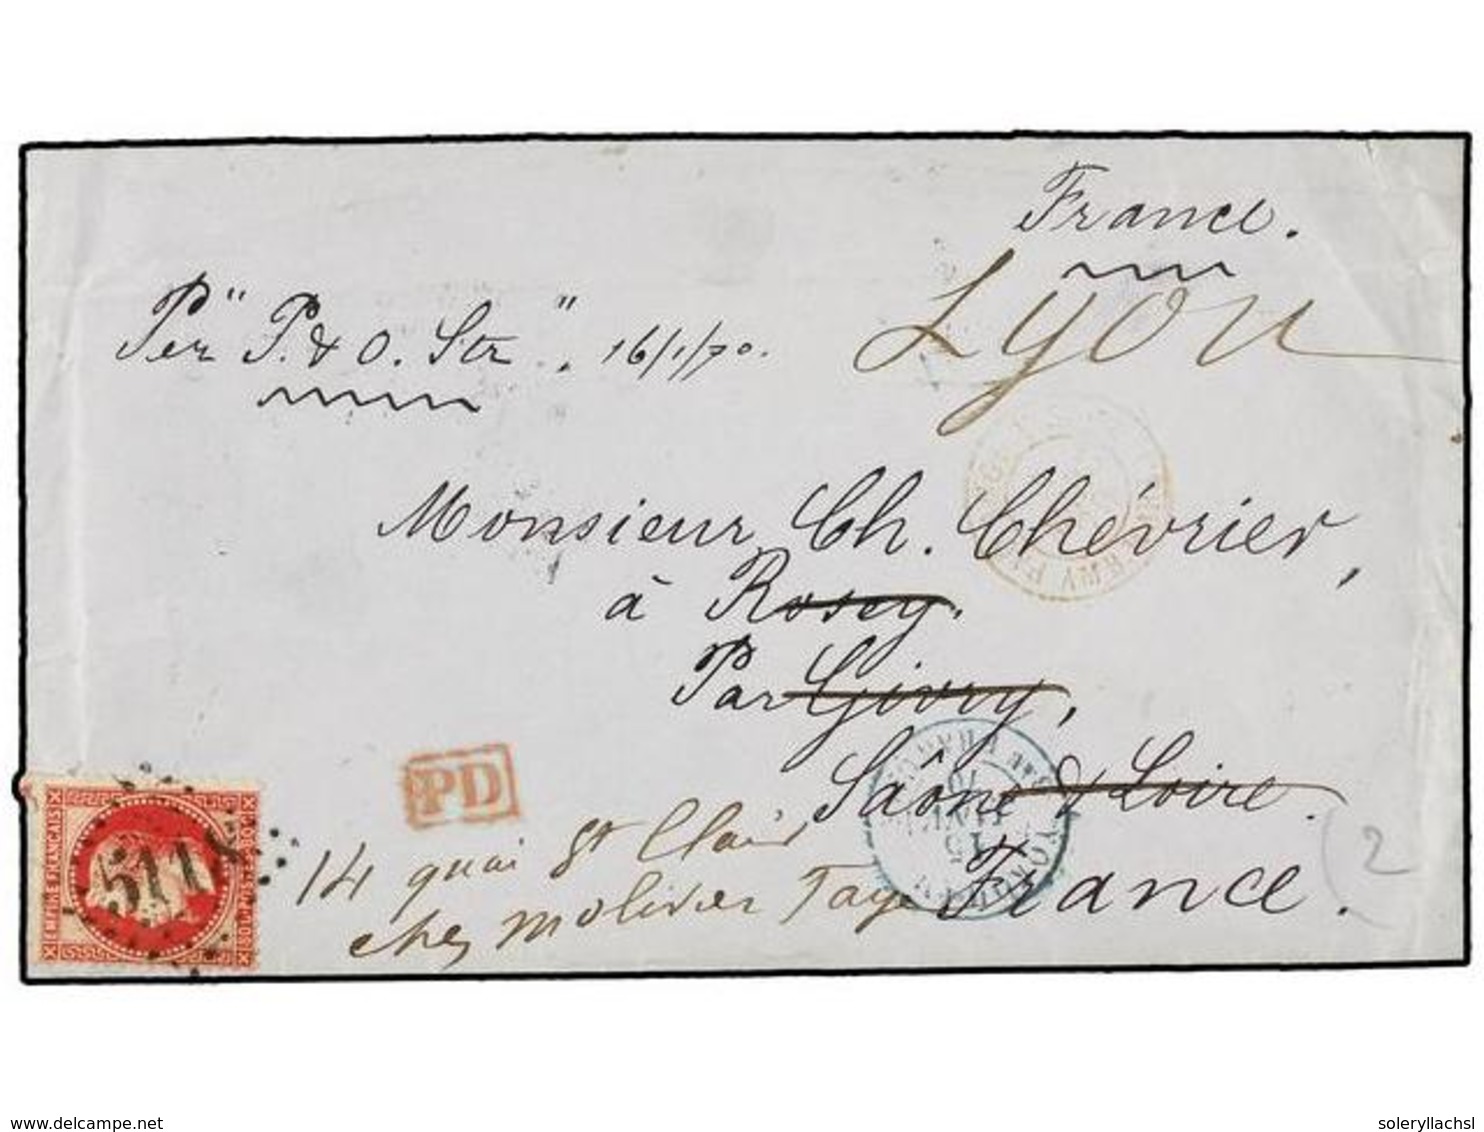 France.
Per "P. & O. Str", 16/1/70.
Lyon
Monsieur Ch. Chévrier,
à Rosey.
Par Givry,
Saône & Loire.
PD
14 quai St Clair
chez molivier Taye
France.
2
EMPIRE FRANÇAIS
5118
80
www.delcampe.net
soleryllachsl